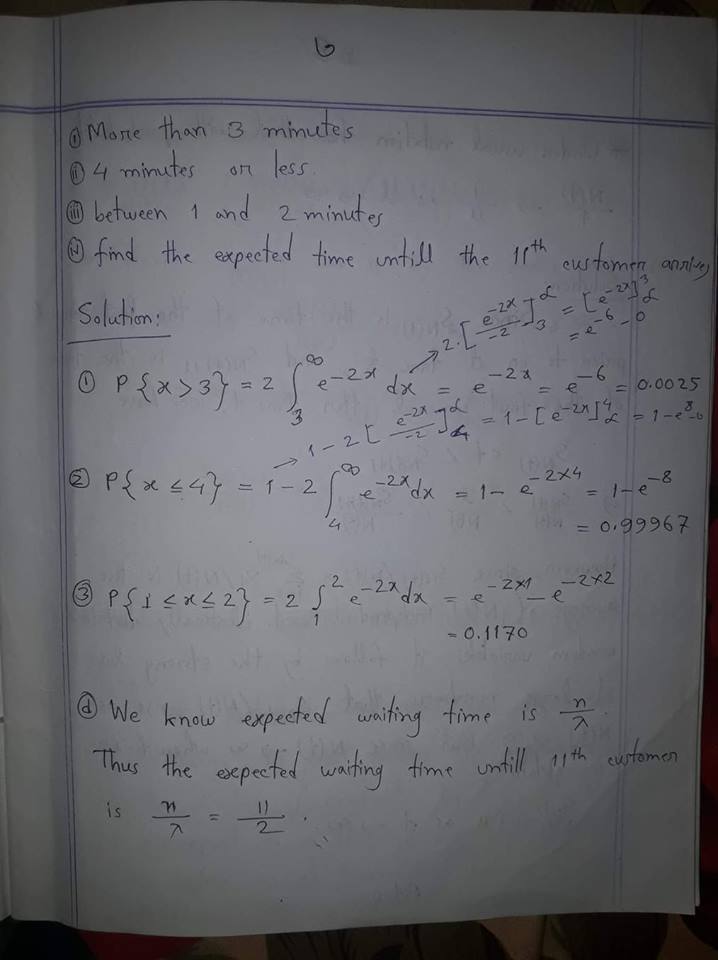 6
(i) More than 3 minutes
(ii) 4 minutes or less.
(iii) between 1 and 2 minutes
(iv) find the expected time untill the 11th customer arrives
Solution:
→ 2·[e^-2x / -2]_3^∝ = [e^-2x]_∝^3
= e^-6 - 0
① P{x>3} = 2 ∫_3^∞ e^-2x dx = e^-2x = e^-6 = 0.0025
→ 1-2 [e^-2x / -2]_4^∝ = 1-[e^-2x]_∝^4 = 1-e^-8-0
② P{x≤4} = 1-2 ∫_4^∞ e^-2x dx = 1- e^-2×4 = 1-e^-8
= 0.99967
③ P{1≤x≤2} = 2 ∫_1^2 e^-2x dx = e^-2×1 - e^-2×2
= 0.1170
ⓓ We know expected waiting time is n/λ.
Thus the expected waiting time untill 11th customer
is n/λ = 11/2.